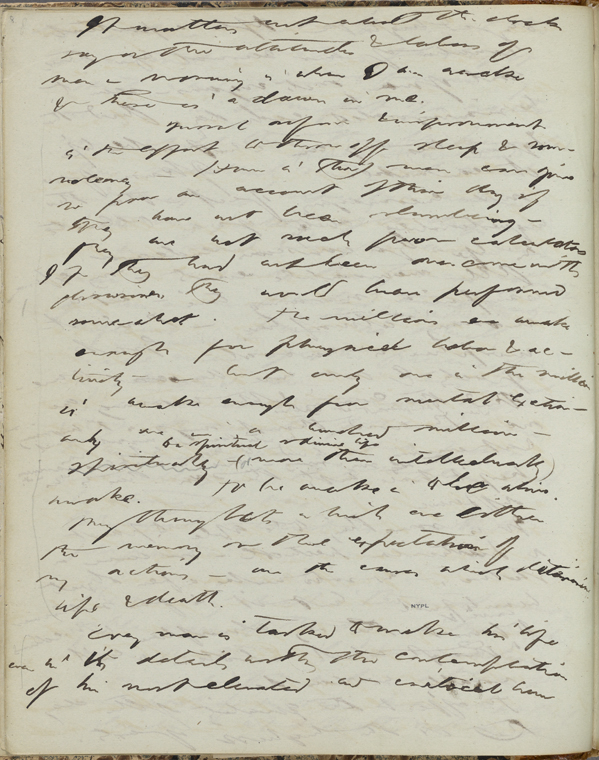 It matters not what the clocks
say or the attitudes & labors of
men – morning is when I am awake
& there is a dawn in me.
moral reform & improvement
is the effort to throw off sleep & som-
nolency – How is it that men can give
so poor an account of their day if
they have not been slumbering –
They are not such poor calculators
If they had not been overcome with
drowsiness they would have performed
somewhat. The millions are awake
enough for physical labor & ac-
tivity – but only one in the million
is awake enough for mental exertion –
only one in a hundred million –
to a spiritual & divine life
spiritually (more than intellectually)
awake. To be awake is to be alive.
my thoughts which are either
the memory or the expectation of
my actions – are the causes which determine
life & death.
NYPL
Every man is tasked to make his life
even in its details worthy the contemplation
of his most elevated and critical hour